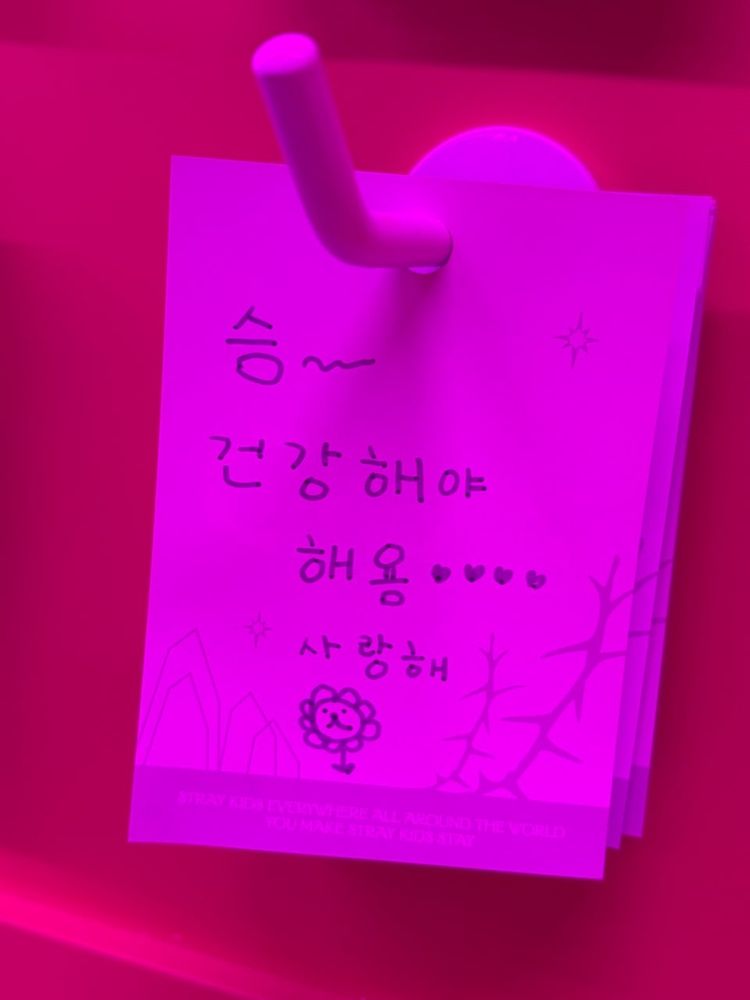 승~
건강해야
해용♥♥♥♥
사랑해
STRAY KIDS EVERYWHERE ALL AROUND THE WORLD
YOU MAKE STRAY KIDS STAY